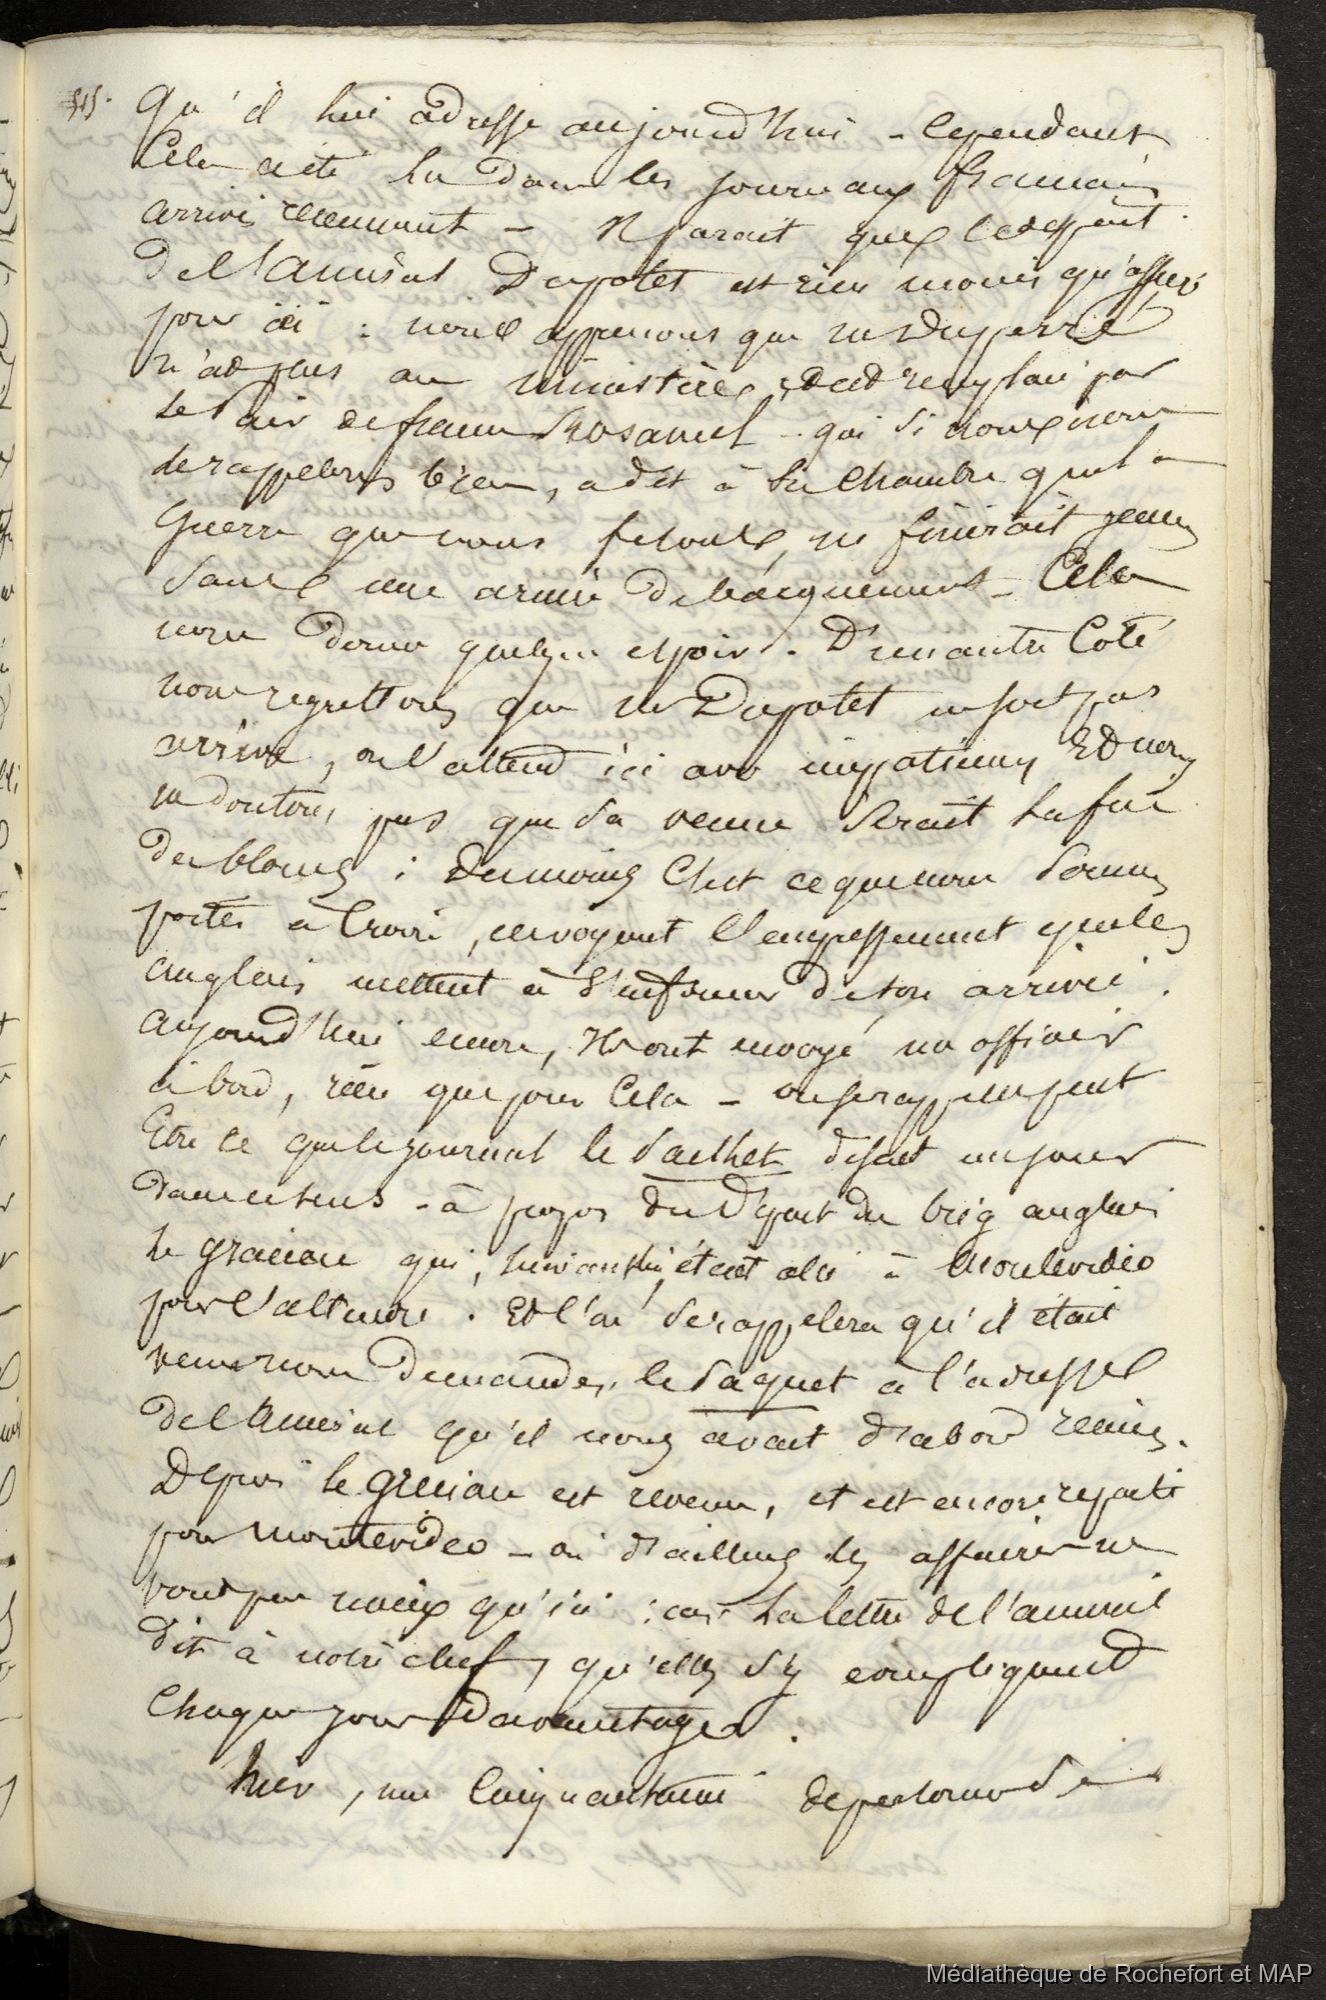 515.
Qu'il lui adresse aujourd'hui - Cependant
Cela a été lu dans les journaux français
arrivés récemment - Il parait que le départ
de l'amiral Dupotet est rien moins qu'assuré
pour ici : nous apprenons que mr Duperré
n'est pas au ministère, et est remplacé par
le Pair de france Rosamel - qui si nous nous
le rappelons bien, a dit à la Chambre que la
Guerre que nous fesons, ne finirait jamais
sans une armée débarquement - Cela
nous donne quelque espoir. D'un autre Coté
nous regrettons que mr Dupotet ne soit pas
arrivé, on l'attend ici avec impatience Et nous
ne doutons pas que sa venue serait la fin
du blocus : du moins C'est ce que nous sommes
portés à Croire, en voyant l'empressement que les
anglais mettent à s'informer de son arrivée.
aujourd'hui encore, ils ont envoyé un officier
à bord, rien que pour Cela - on se rappelle peut
Etre ce que le journal le disait un jour
dans ce sens - à propos du départ du brig anglais
le grecian qui, suivant lui, était allé à Montevideo
pour l'attendre. Et l'on se rappelera qu'il était
venu nous demander le paquet à l'adresse
de l'amiral qu'il nous avait d'abord remis.
Depuis le grecian est revenu, et est encore reparti
pour Montevideo - où d'ailleurs les affaires ne
vont pas mieux qu'ici : car la lettre de l'amiral
dit à notre chef, qu'elles s'y compliquent
Chaque jour davantage.
hier, une Cinquantaine de personnes
Médiathèque de Rochefort et MAP